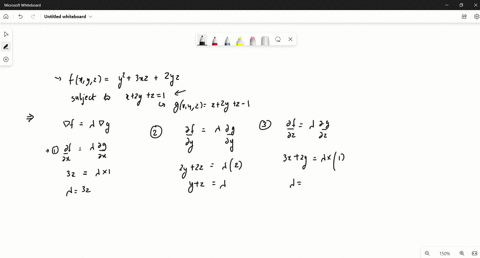 Microsoft Whiteboard
Untitled whiteboard
→ f(x,y,z) = y² + 3xz + 2yz
subject to x+2y+z=1 ←
↳ g(x,y,z) = x+2y+z-1
⇒ ∇f = λ ∇g
→ ① ∂f/∂x = λ ∂g/∂x
3z = λ×1
λ = 3z
② ∂f/∂y = λ ∂g/∂y
2y+2z = λ(2)
y+z = λ
③ ∂f/∂z = λ ∂g/∂z
3x+2y = λ×(1)
λ =
150%